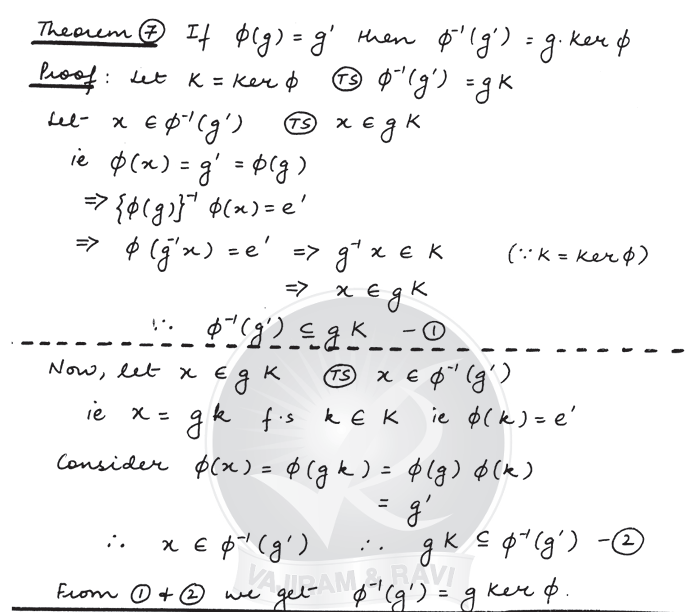 Theorem ⑦ If ϕ(g) = g' then ϕ⁻¹(g') = g. ker ϕ
Proof: Let K = ker ϕ (TS) ϕ⁻¹(g') = gK
Let x ∈ ϕ⁻¹(g') (TS) x ∈ gK
ie ϕ(x) = g' = ϕ(g)
=> {ϕ(g)}⁻¹ ϕ(x) = e'
=> ϕ(g⁻¹x) = e' => g⁻¹x ∈ K (∵ K = ker ϕ)
=> x ∈ gK
∴ ϕ⁻¹(g') ⊆ gK - ①
Now, let x ∈ gK (TS) x ∈ ϕ⁻¹(g')
ie x = gk f.s k ∈ K ie ϕ(k) = e'
Consider ϕ(x) = ϕ(gk) = ϕ(g) ϕ(k)
= g'
∴ x ∈ ϕ⁻¹(g') ∴ gK ⊆ ϕ⁻¹(g') - ②
VAJIRAM & RAVI
From ① + ② we get ϕ⁻¹(g') = g ker ϕ.